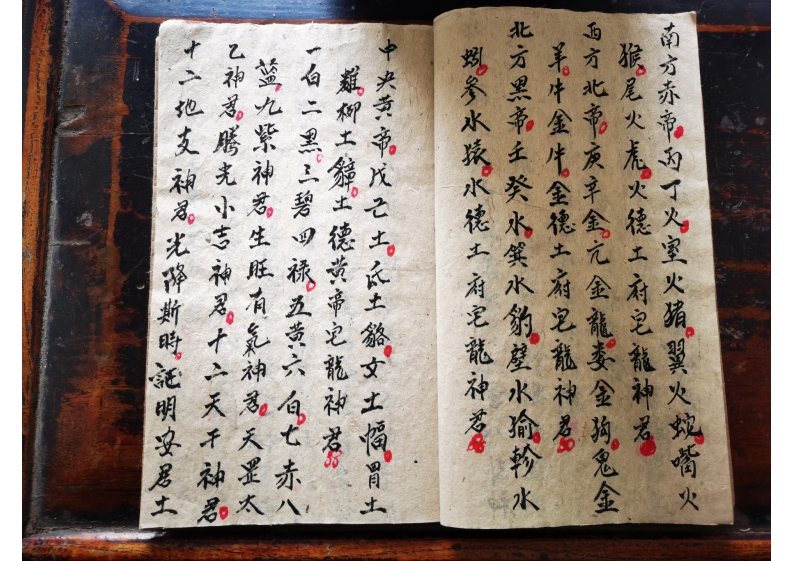 南方赤帝丙丁火室火猪翼火蛇嘴火
猴尾火虎火德土府宅龍神君
西方北帝庚辛金亢金龍娄金狗鬼金
羊牛金牛金德土府宅龍神君
北方黑帝壬癸水箕水豹壁水㺄軫水
蚓參水猿水德土府宅龍神君
中央黃帝戊己土氐土貉女土蝠胃土
雞柳土獐土德黃帝宅龍神君
一白二黑三碧四禄五黃六白七赤八
藍九紫神君生旺有氣神君天罡太
乙神君騰光小吉神君十二天干神君
十二地支神君光降斯時証明安居土